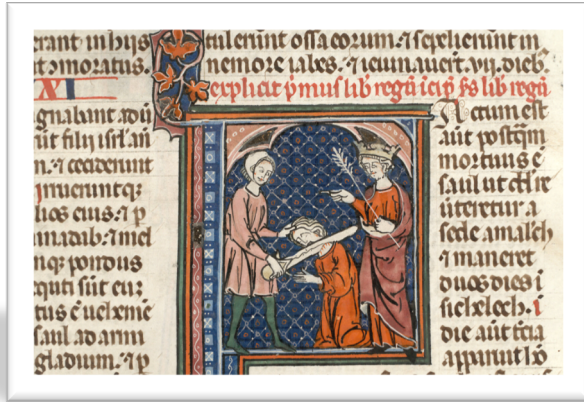 erant in hiis
t
XI
gnabant adū
ūt filii isrl' an
n. ⁊ ceciderunt
irrueruntq;
lios eius. ⁊ p
inadab. ⁊ mel
nq; pondus
cuti sūt eur
tus ē uehemē
saul ad armi
gladium. ⁊ p
tulerunt ossa eorum. ⁊ sepelierunt in
nemore iabes. ⁊ ieiunauert. vij. dieb.
explicit p̄mus lib regū icip̄ s̄s lib regū
Actum est
aūt postqm
mortuus ē
saul ut re
uteretur a
cede amalech
⁊ maneret
duos dies i
sichelech. i
die aūt tcia
apparuit hō